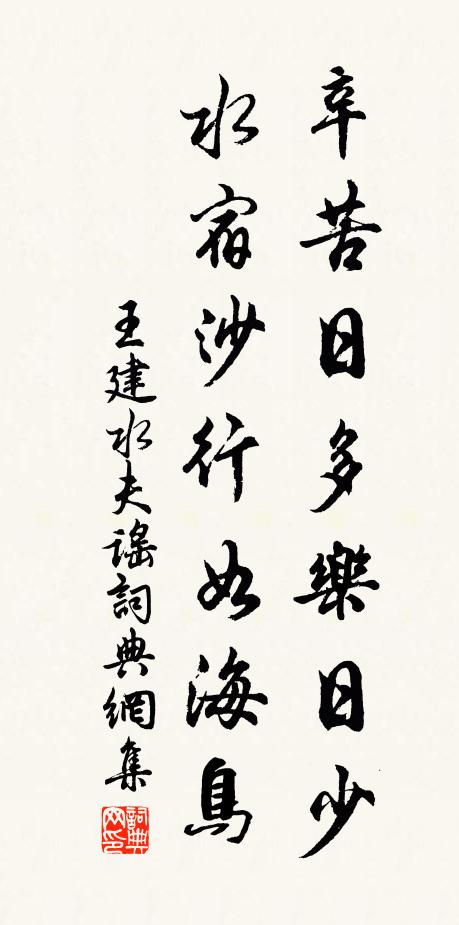 辛苦日多樂日少
水宿沙行如海鳥
王建水夫謠詞典網集
詞典
网印